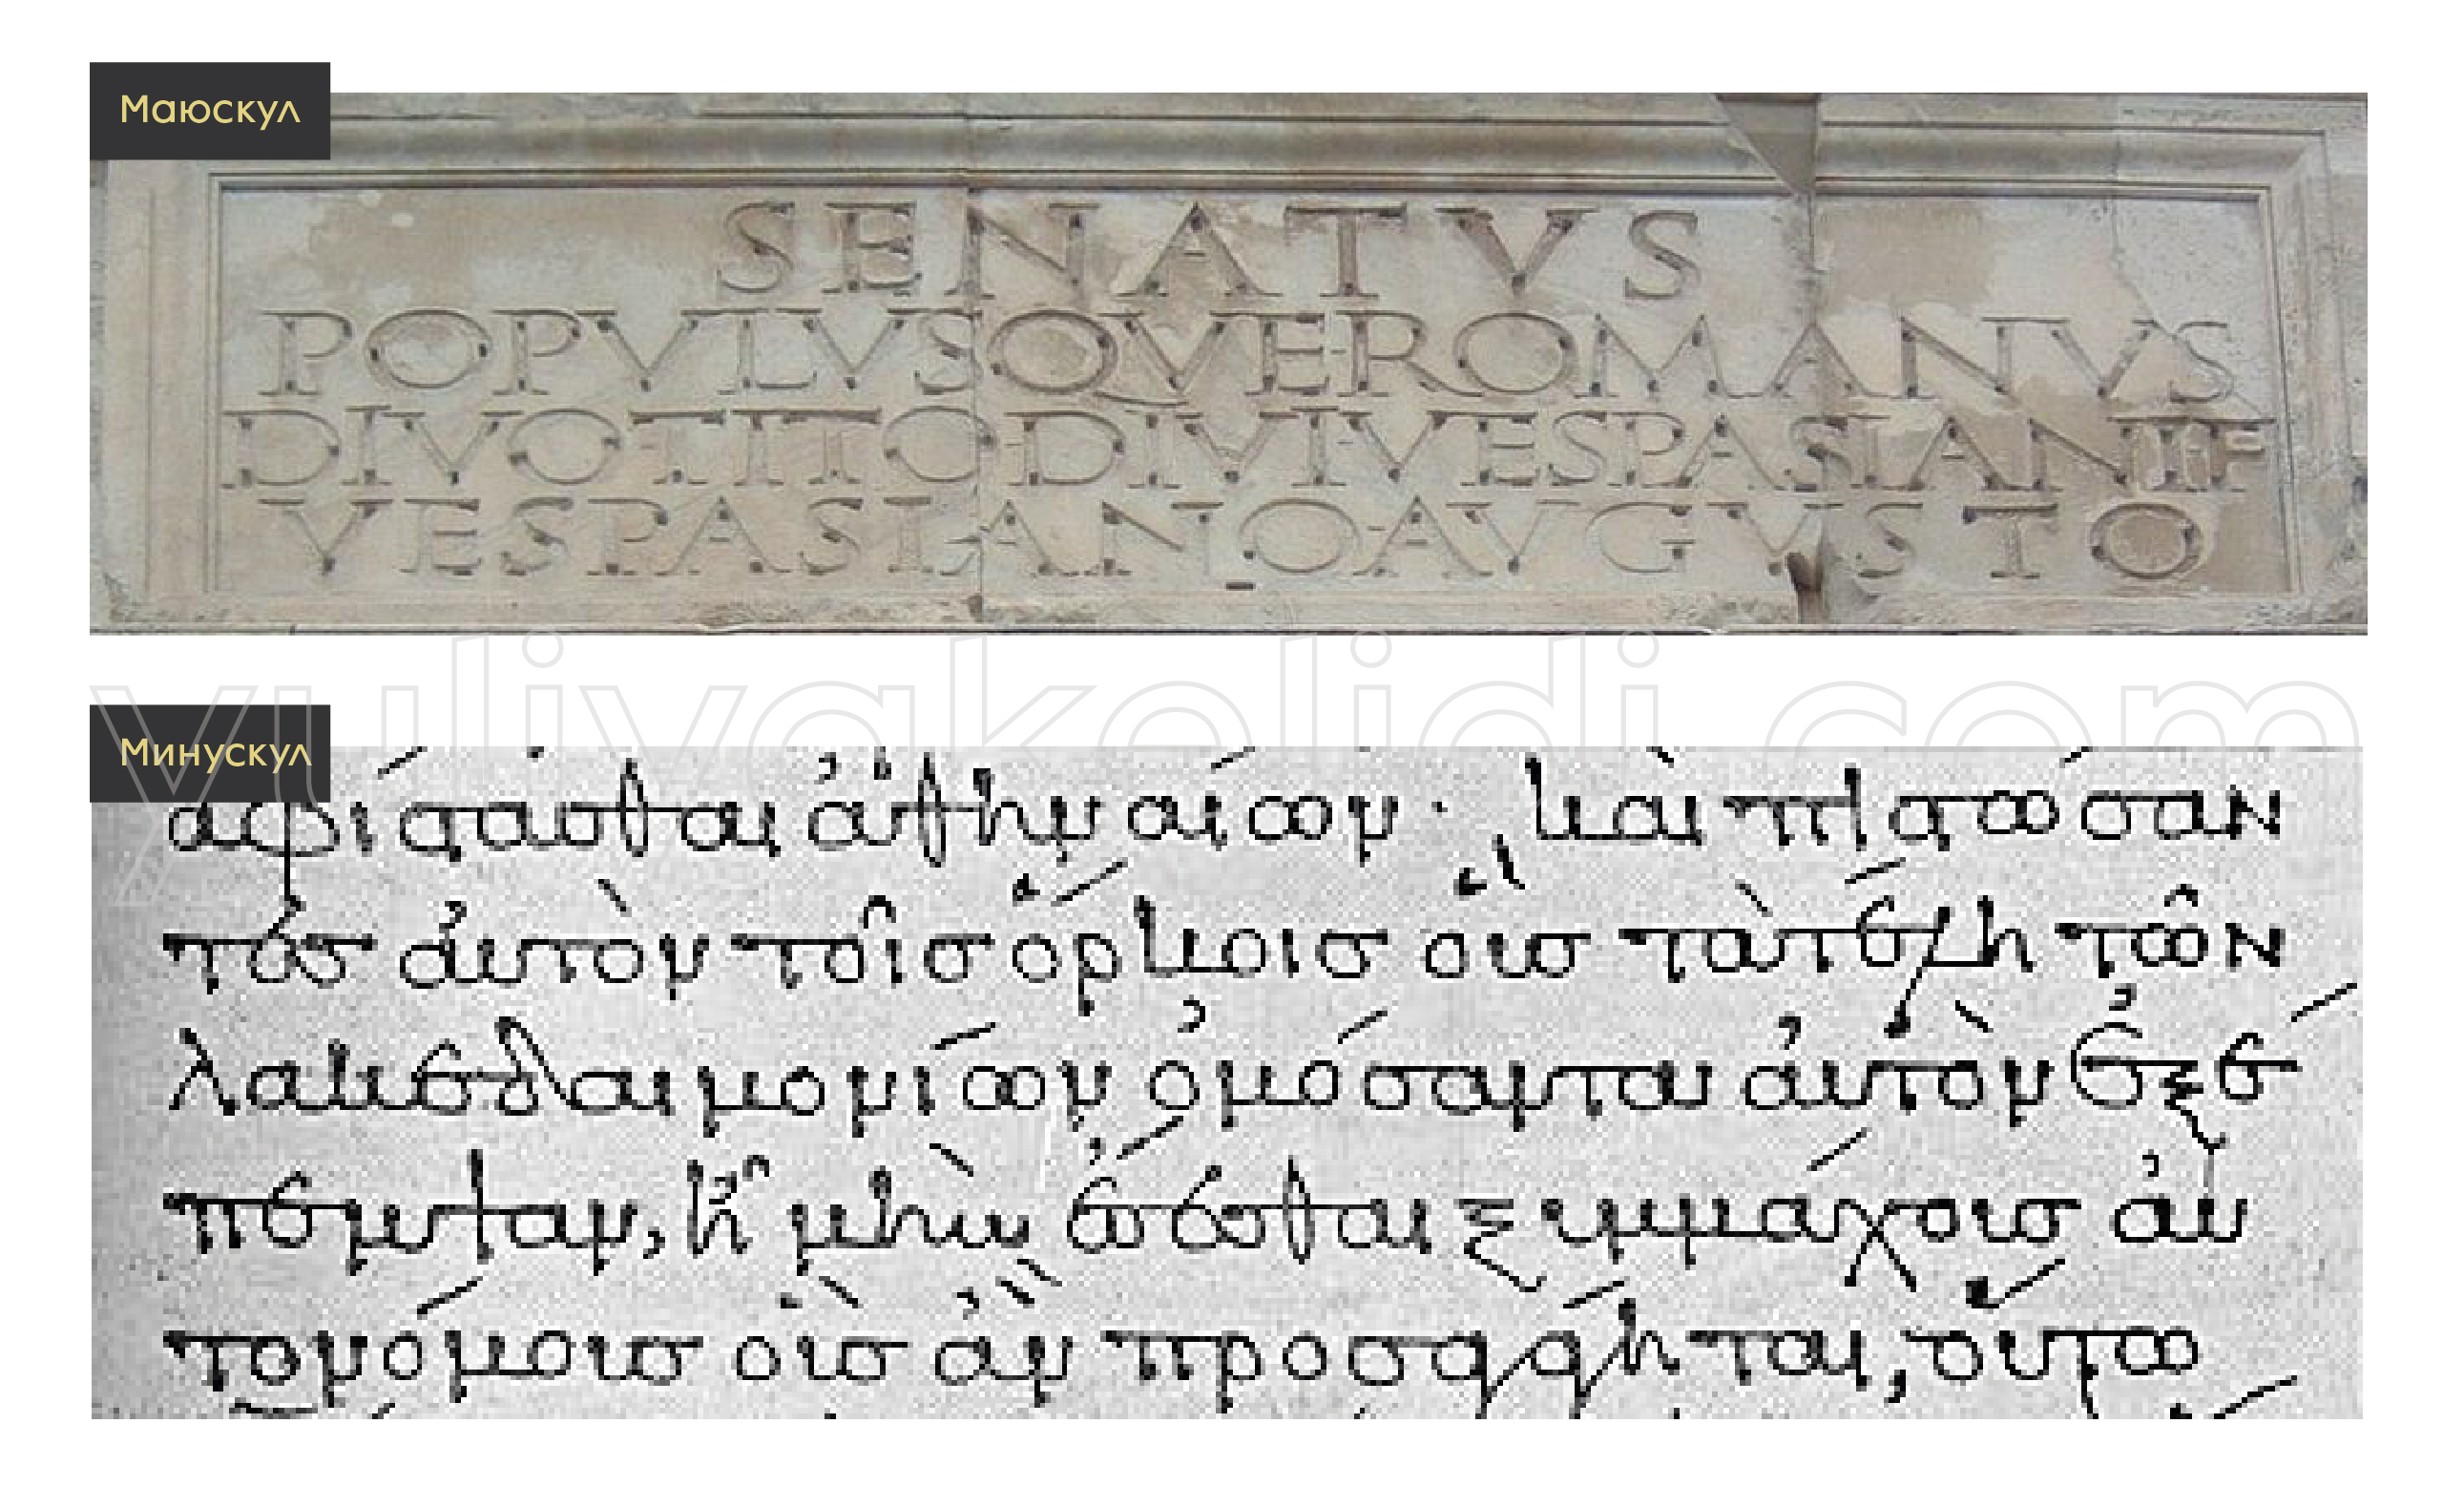 Маюскул
SENATVS
POPVLVSQVEROMANVS
DIVOTITODIVIVESPASIANIF
VESPASIANOAVGVSTO
yuliyakelidi.com
Минускул
ἀφίστασθαι ἀθηναίων· καὶ πιστώσαν
τεσ ἀυτὸν τοῖσ ὅρκοισ οὕσ τὰ τέλη τῶν
λακεδαιμονίων ὀμόσαντα ἀυτὸν ἐξέ
πεμψαν, ἦ μὴν ἔσεσθαι ξυμμάχουσ ἀυ
τονόμουσ οὓσ ἂν προσαγάγηται, ὅυτω